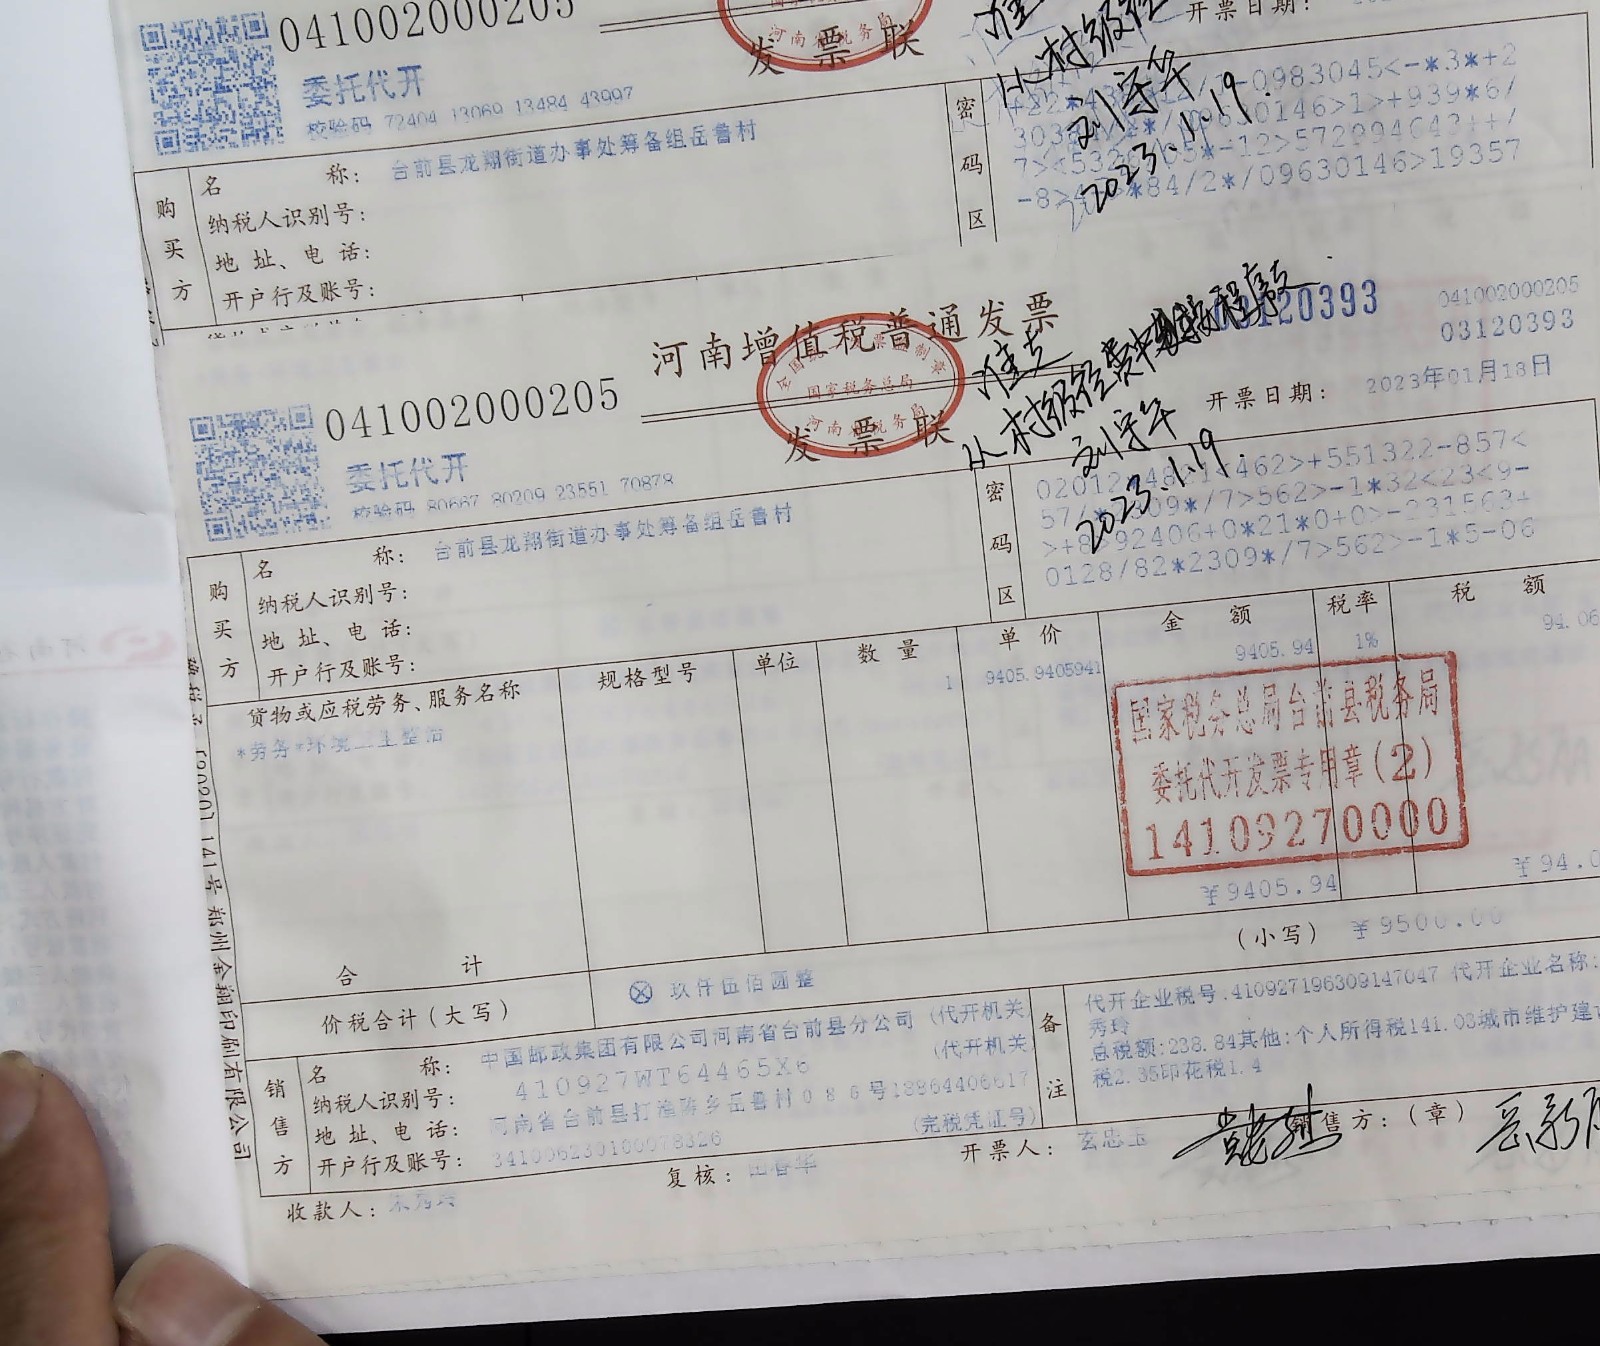 041002000205
发票联
开票日期:
委托代开
校验码 72404 13069 13484 43997
国家税务总局
河南省税务局
准支
从村级经
刘守午
2023.1.19.
购买方
名称: 台前县龙翔街道办事处筹备组岳鲁村
纳税人识别号:
地址、电话:
开户行及账号:
密码区
-0983045<-*3*+2
0146>1>+939*6/
*-12>572094643++/
*84/2*/09630146>19357
河南增值税普通发票
03120393
041002000205
03120393
041002000205
发票联
国家税务总局
河南省税务局
开票日期: 2023年01月18日
委托代开
校验码 80667 80209 23551 70878
准支
从村级经费中
程序支
刘守午
2023.1.19.
购买方
名称: 台前县龙翔街道办事处筹备组岳鲁村
纳税人识别号:
地址、电话:
开户行及账号:
密码区
462>+551322-857<
/7>562>-1*32<23<9-
92406+0*21*0+0>-231563+
0128/82*2309*/7>562>-1*5-06
货物或应税劳务、服务名称 规格型号 单位 数量 单价 金额 税率 税额
*劳务*环境卫生整治 1 9405.9405941 9405.94 1% 94.06
国家税务总局台前县税务局
委托代开发票专用章(2)
14109270000
合计 ¥9405.94 ¥94.0
价税合计(大写) ⊗ 玖仟伍佰圆整 (小写) ¥9500.00
销售方
名称: 中国邮政集团有限公司河南省台前县分公司 (代开机关
纳税人识别号: 410927WT64465X6 (代开机关
地址、电话: 河南省台前县打渔陈乡岳鲁村086号18864406617
开户行及账号: 341006230100078326 (完税凭证号)
备注
代开企业税号:410927196309147047 代开企业名称:
秀玲
总税额:238.84其他:个人所得税141.03城市维护建
税2.35印花税1.4
收款人: 宋秀玲
复核: 田春华
开票人: 玄忠玉
销售方:(章)
[2020]141号郑州金翔印刷有限公司